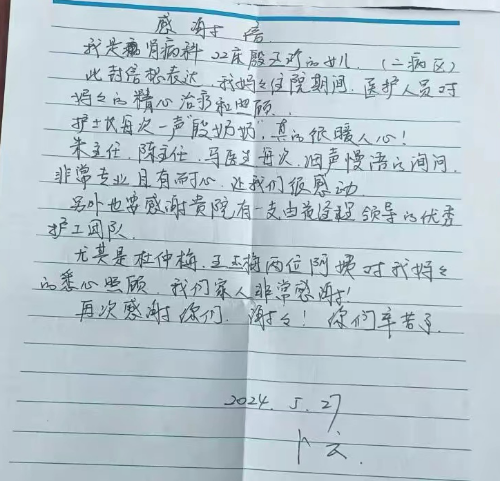 感谢信
我是肾病科22床殷玉珍的女儿.（二病区）
此封信想表达，我妈妈住院期间，医护人员对
妈妈的精心治疗和照顾.
护士长每次一声“殷奶奶”，真的很暖人心！
朱主任、陈主任、马医生每次，细声慢语的询问.
非常专业且有耐心，让我们很感动.
另外也要感谢贵院，有一支由领导的优秀
护工团队.
尤其是杜仲梅、王玉梅两位阿姨对我妈妈
的悉心照顾，我们家人非常感谢！
再次感谢你们，谢谢！你们辛苦了.
2024.5.27
卜云